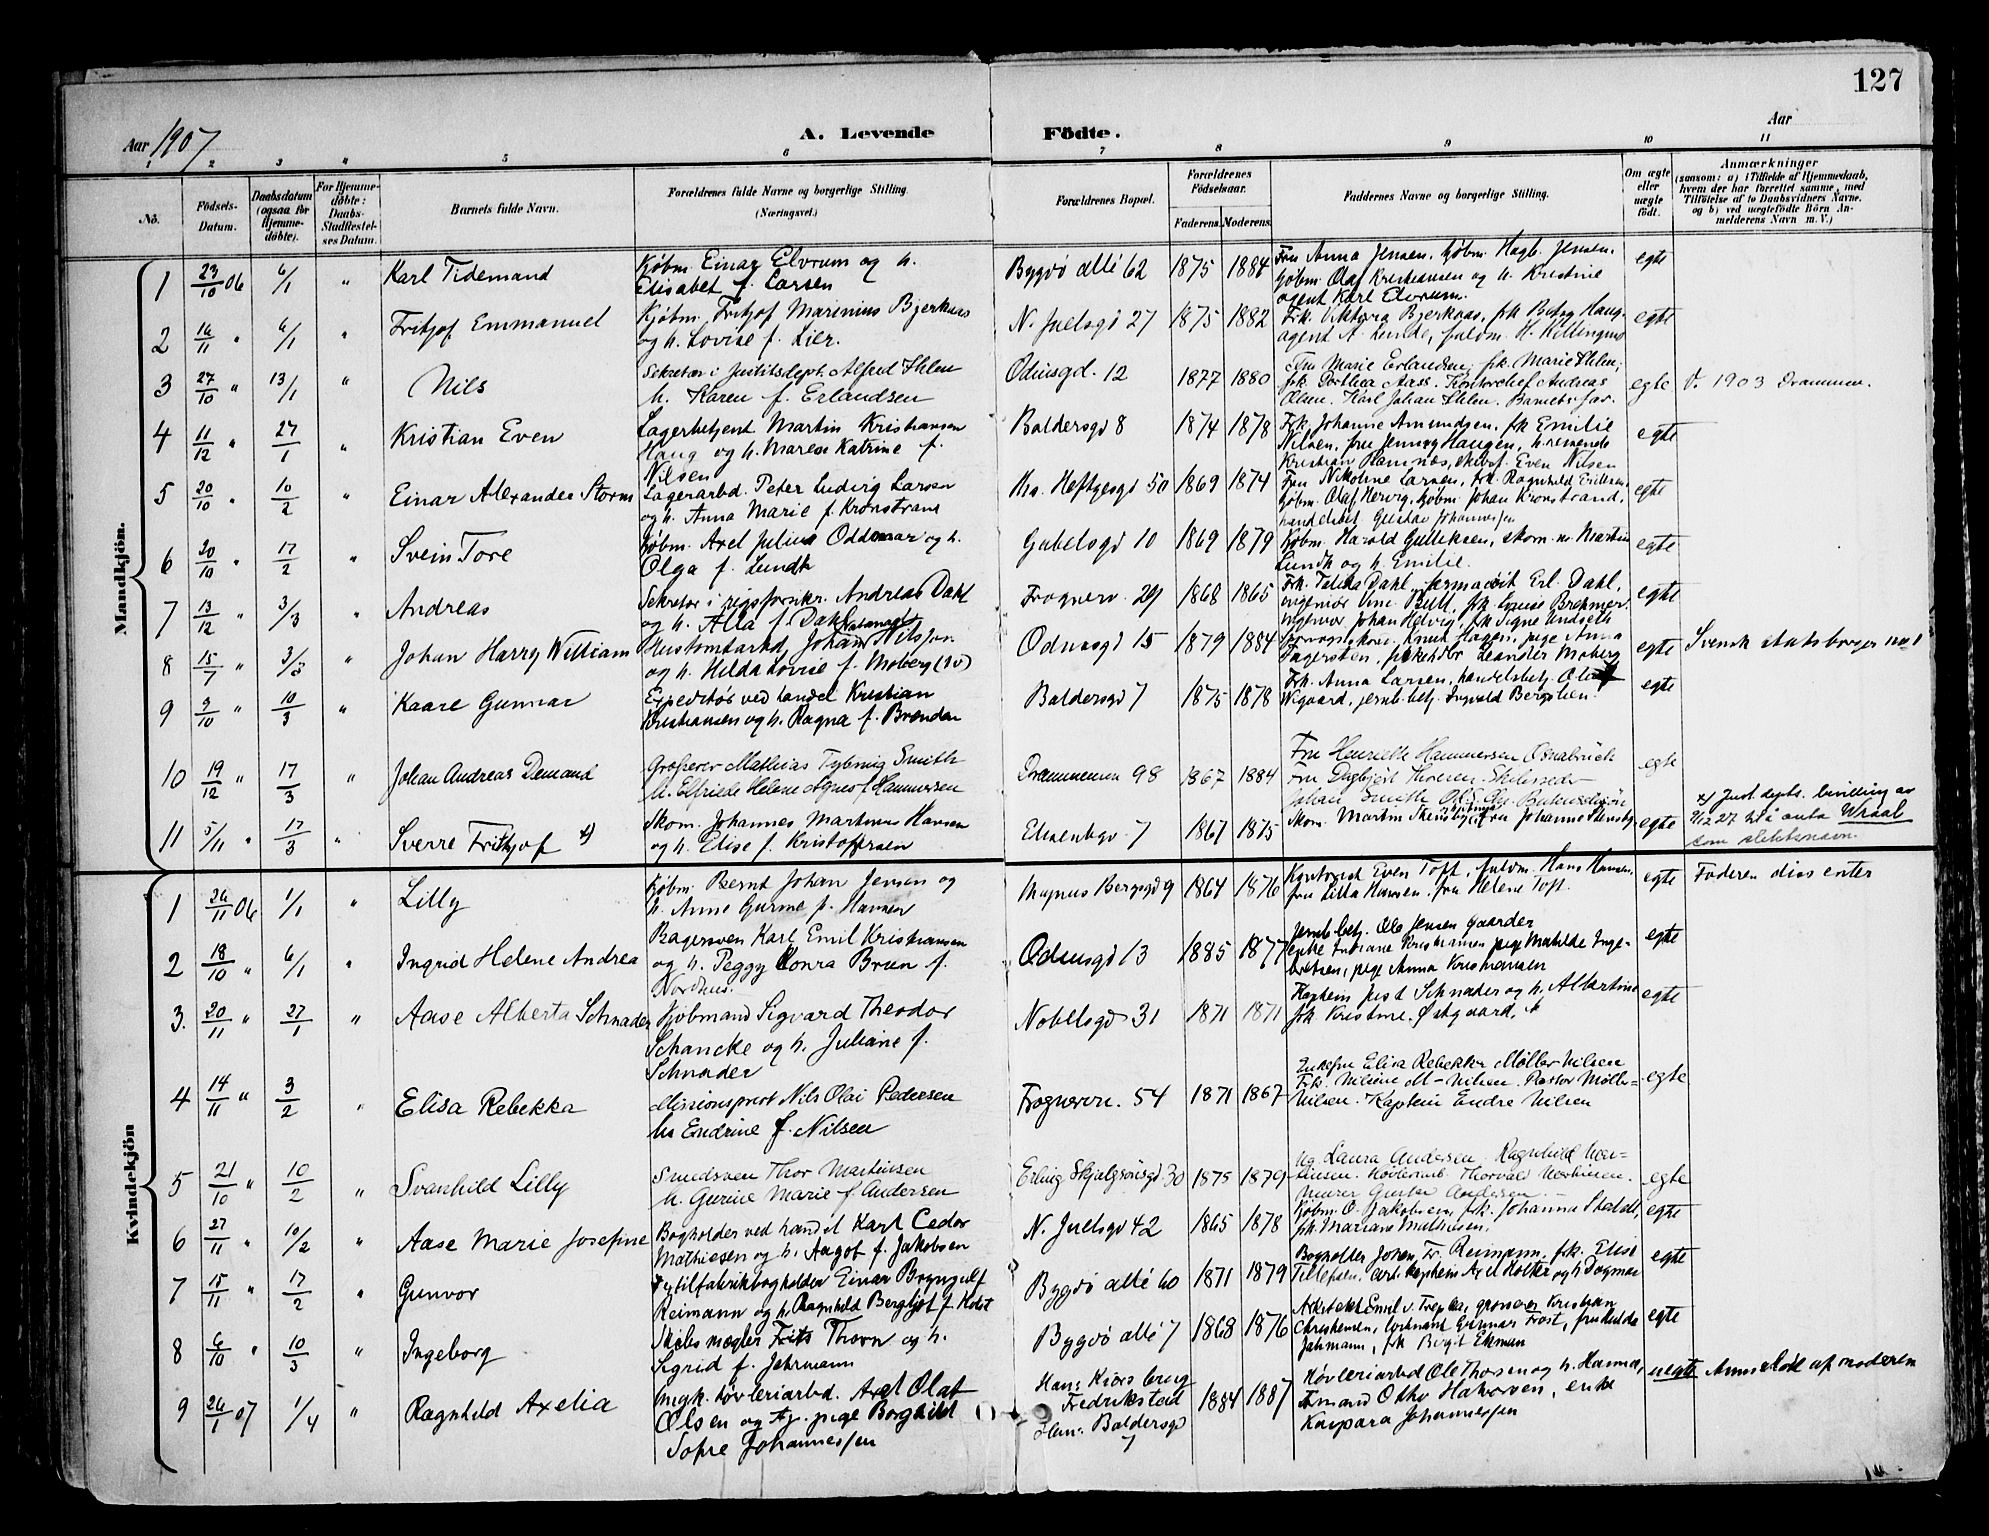 127
Aar 1907
A. Levende Födte.
Aar
1 2 3 " 5 6 7 8 9 10 11
No. Födsels-Datum. Daabsdatum (ogsaa for Hjemme-döbte). For Hjemme-döbte: Daabs-Stadfæstel-ses Datum. Barnets fulde Navn. Forældrenes fulde Navne og borgerlige Stilling. (Næringsvei.) Forældrenes Bopæl. Forældrenes Födselsaar. Faderens. Moderens. Faddernes Navne og borgerlige Stilling. Om ægte eller uægte födt. Anmærkninger (saasom: a) i Tilfælde af Hjemmedaab, hvem der har forrettet samme, med Tilföielse af to Daabsvidners Navne, og b) ved uegtefödte Börn An-melderens Navn m. V.)
Mandkjön.
1 23/10 06 6/1 " Karl Tidemand Kjøbm. Einar Elvrum og h. Elisabet f. Larsen Bygdø allé 62 1875 1884 Fru Anna Jensen, kjøbm. Hagb. Jensen, kjøbm. Olaf Kristiansen og h. Kristine agent Karl Elvrum. egte
2 16/11 " 6/1 " Fritjof Emmanuel Kjøbm. Fritjof Marinius Bjerknas og h. Lovise f. Lier. N. Juelsgd 27 1875 1882 Frk. Viktoria Bjerknas, frk Betsy Haug, agent A. Lunde, fuldm. H. egte
3 27/10 " 13/1 " Nils Sekretær i Justitsdept. Alfred Ihlen h. Karen f. Erlandsen Odinsgd. 12 1877 1880 Fru Marie Erlandsen, frk. Marie Ihlen, frk. Aass. Kontorchef Andreas Olsen. Karl Johan Ihlen. Barnets far. egte V. 1903 Drammen.
4 11/12 " 27/1 " Kristian Even Lagerbetjent Martin Kristiansen Haug og h. Maren Katrine f. Nilsen Baldersgd 8 1874 1878 Frk. Johanne Amundsen, frk Emilie Nilsen, fru Jenny Haugen, h. reisende Kristian Ramnæs, Even Nilsen egte
5 20/10 " 10/2 " Einar Alexander Storm Lagerarbd. Peter Ludvig Larsen og h. Anna Marie f. Kronstrand Ths. Heftyesgd 50 1869 1874 Fru Nikoline Larsen, frk. Ragnhild Eriksen, kjøbm. Olaf Hervig, kjøbm Johan Kronstrand, handelsbet. Gustav Johannessen egte
6 20/10 " 17/2 " Svein Tore Kjøbm. Axel Julius Oddmar og h. Olga f. Lundh Gabelsgd 10 1869 1879 Kjøbm. Harald Gulliksen, skom. m. Martin Lundh og h. Emilie. egte
7 13/12 " 3/3 " Andreas Sekretær i rigsforsikr. Andreas Dahl og h. Alla f. Dahl Frognerv. 29 1868 1865 Frk. Dahl, farmaceut Erl. Dahl, ingeniør Bull, frk. Louise Brekmer, ingeniør Johan Helvig, frk Signe egte
8 15/7 " 3/3 " Johan Harry William Hustomtarbd. Johan Nilsson og h. Hilda Lovise f. Moberg (sv) Odinsgd 15 1879 1884 Knut Hagen, pige Anna Fagersten, Leander Moberg egte Svensk statsborger
9 9/10 " 10/3 " Kaare Gunnar Expeditør ved handel Kristian Kristiansen og h. Ragna f. Brenden Baldersgd 7 1875 1878 Frk. Anna Larsen, handelsbetj. Olaf Wigaard, jernb. betj. Ingvald Bergslien. egte
10 19/12 " 17/3 " Johan Andreas Demand Grosserer Mathias Tybring Smith h. Elfriede Helene Agnes f. Hammersen Drammensvn 98 1867 1884 Fru Henriette Hammersen Osnabrück Fru Dagbjørt Skibsreder Johan Smith egte
11 5/11 " 17/3 " Sverre Fritjof x) Skom. Johannes Martinus Hansen og h. Elise f. Kristoffersen Elisenbgd 7 1867 1875 Skom. Martin Stensby, fru Johanne Stensby egte x) Just. depts. bevilling av 9/12 27 til å anta Wraal som slektsnavn.
Kvindekjön
1 26/11 06 1/1 " Lilly Kjøbm. Bernt Johan Jensen og h. Anne Gurine f. Hansen Magnus Bergsgd 9 1864 1876 Kontorist Even Toft, fuldm. Hans Hansen, fru Lilla Hansen, fru Helene Toft. egte Faderen dissenter
2 18/10 " 6/1 " Ingrid Helene Andrea Bagersven Karl Emil Kristiansen og h. Peggy Conra Brun f. Nordhus. Odinsgd 13 1885 1877 Jernb. betj. Ole Jensen Gaarder enke Kristiansen pige Mathilde Inge-bretsen, pige Anna Kristiansen egte
3. 20/11 " 27/1 " Aase Alberta Schnader Kjøbmand Sigvard Theodor Schancke og h. Juliane f. Schnader Nobelsgd 31 1871 1871 Kaptein Just Schnader og h. Albertine frk Kristine Østgaard, egte
4 14/11 " 3/2 " Elisa Rebekka Missionsprest Nils Olai Pedersen h. Endrine f. Nilsen Frognervn. 54 1871 1867 Enkefru Elisa Rebekka Møller Nilsen Frk. M- Nilsen. Pastor Møller-Nilsen. Kaptein Endre Nilsen egte
5 21/10 " 10/2 " Svanhild Lilly Smedsven Thor Martinsen h. Gurine Marie f. Andersen Erling Skjalgsønsgd 30 1875 1879 Laura Andersen. Ragnhild Mar-tinsen. Høvleriarb Thorvald Martinsen. Murer Gustav Andersen. egte
6 27/11 " 10/2 " Aase Marie Josefine Bogholder ved handel Karl Ceder Mathiesen og h. Aagot f. Jakobsen N. Juelsgd 42 1865 1878 Kjøbm. O. Jakobsen, frk. Johanna frk Mariane Mathiesen. egte
7 15/11 " 17/2 " Gunvor Fabrikbogholder Einar Bryngulf Reimann og h. Ragnhild Bergljot f. Holst Bygdø allé 60 1871 1879 Bogholder Johan Fr. Reimann, frk. Elise Tillefsen, art. kaptein Axel Holter og h Dagmar egte
8 6/10 " 10/3 " Ingeborg Skibsmægler Frits Thorn og h. Sigrid f. Jahrmann Bygdø allé 7 1868 1876 Arkitekt Emil v. grosserer Kristian Christensen, løitnant Gunnar Frost, fru Hulda Jahrmann, frk Birgit Ekman egte
9 26/1 07 1/4 " Ragnhild Axelia Ungk. høvleriarbd. Axel Olaf Olsen og pige Borghild Sofie Johannessen Han: Kjørsberg Fredrikstad Hun: Baldersgd 7 1884 1887 Høvleriarbd Ole Thorsen og h. Hanna, Formand Otto Halvorsen, enke Kaspara Johannessen uegte Anmeldt af moderen